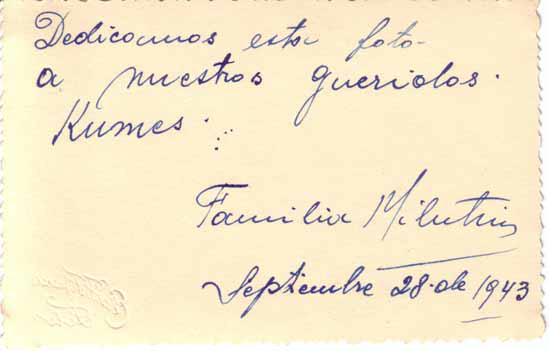 Dedicamos esta foto
a nuestros queridos.
Kumes.
Familia Milutin
Septiembre 28 de 1943